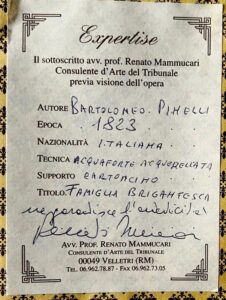 Expertise
Il sottoscritto avv. prof. Renato Mammucari
Consulente d'Arte del Tribunale
previa visione dell'opera
AUTORE BARTOLOMEO PINELLI
EPOCA 1823
NAZIONALITÀ ITALIANA
TECNICA ACQUAFORTE ACQUERELLATA
SUPPORTO CARTONCINO
TITOLO: FAMIGLIA BRIGANTESCA
ne garantisce l'autenticità
AVV. PROF. RENATO MAMMUCARI
CONSULENTE D'ARTE DEL TRIBUNALE
00049 VELLETRI (RM)
Tel. 06.962.78.87 - Fax 06.962.73.05